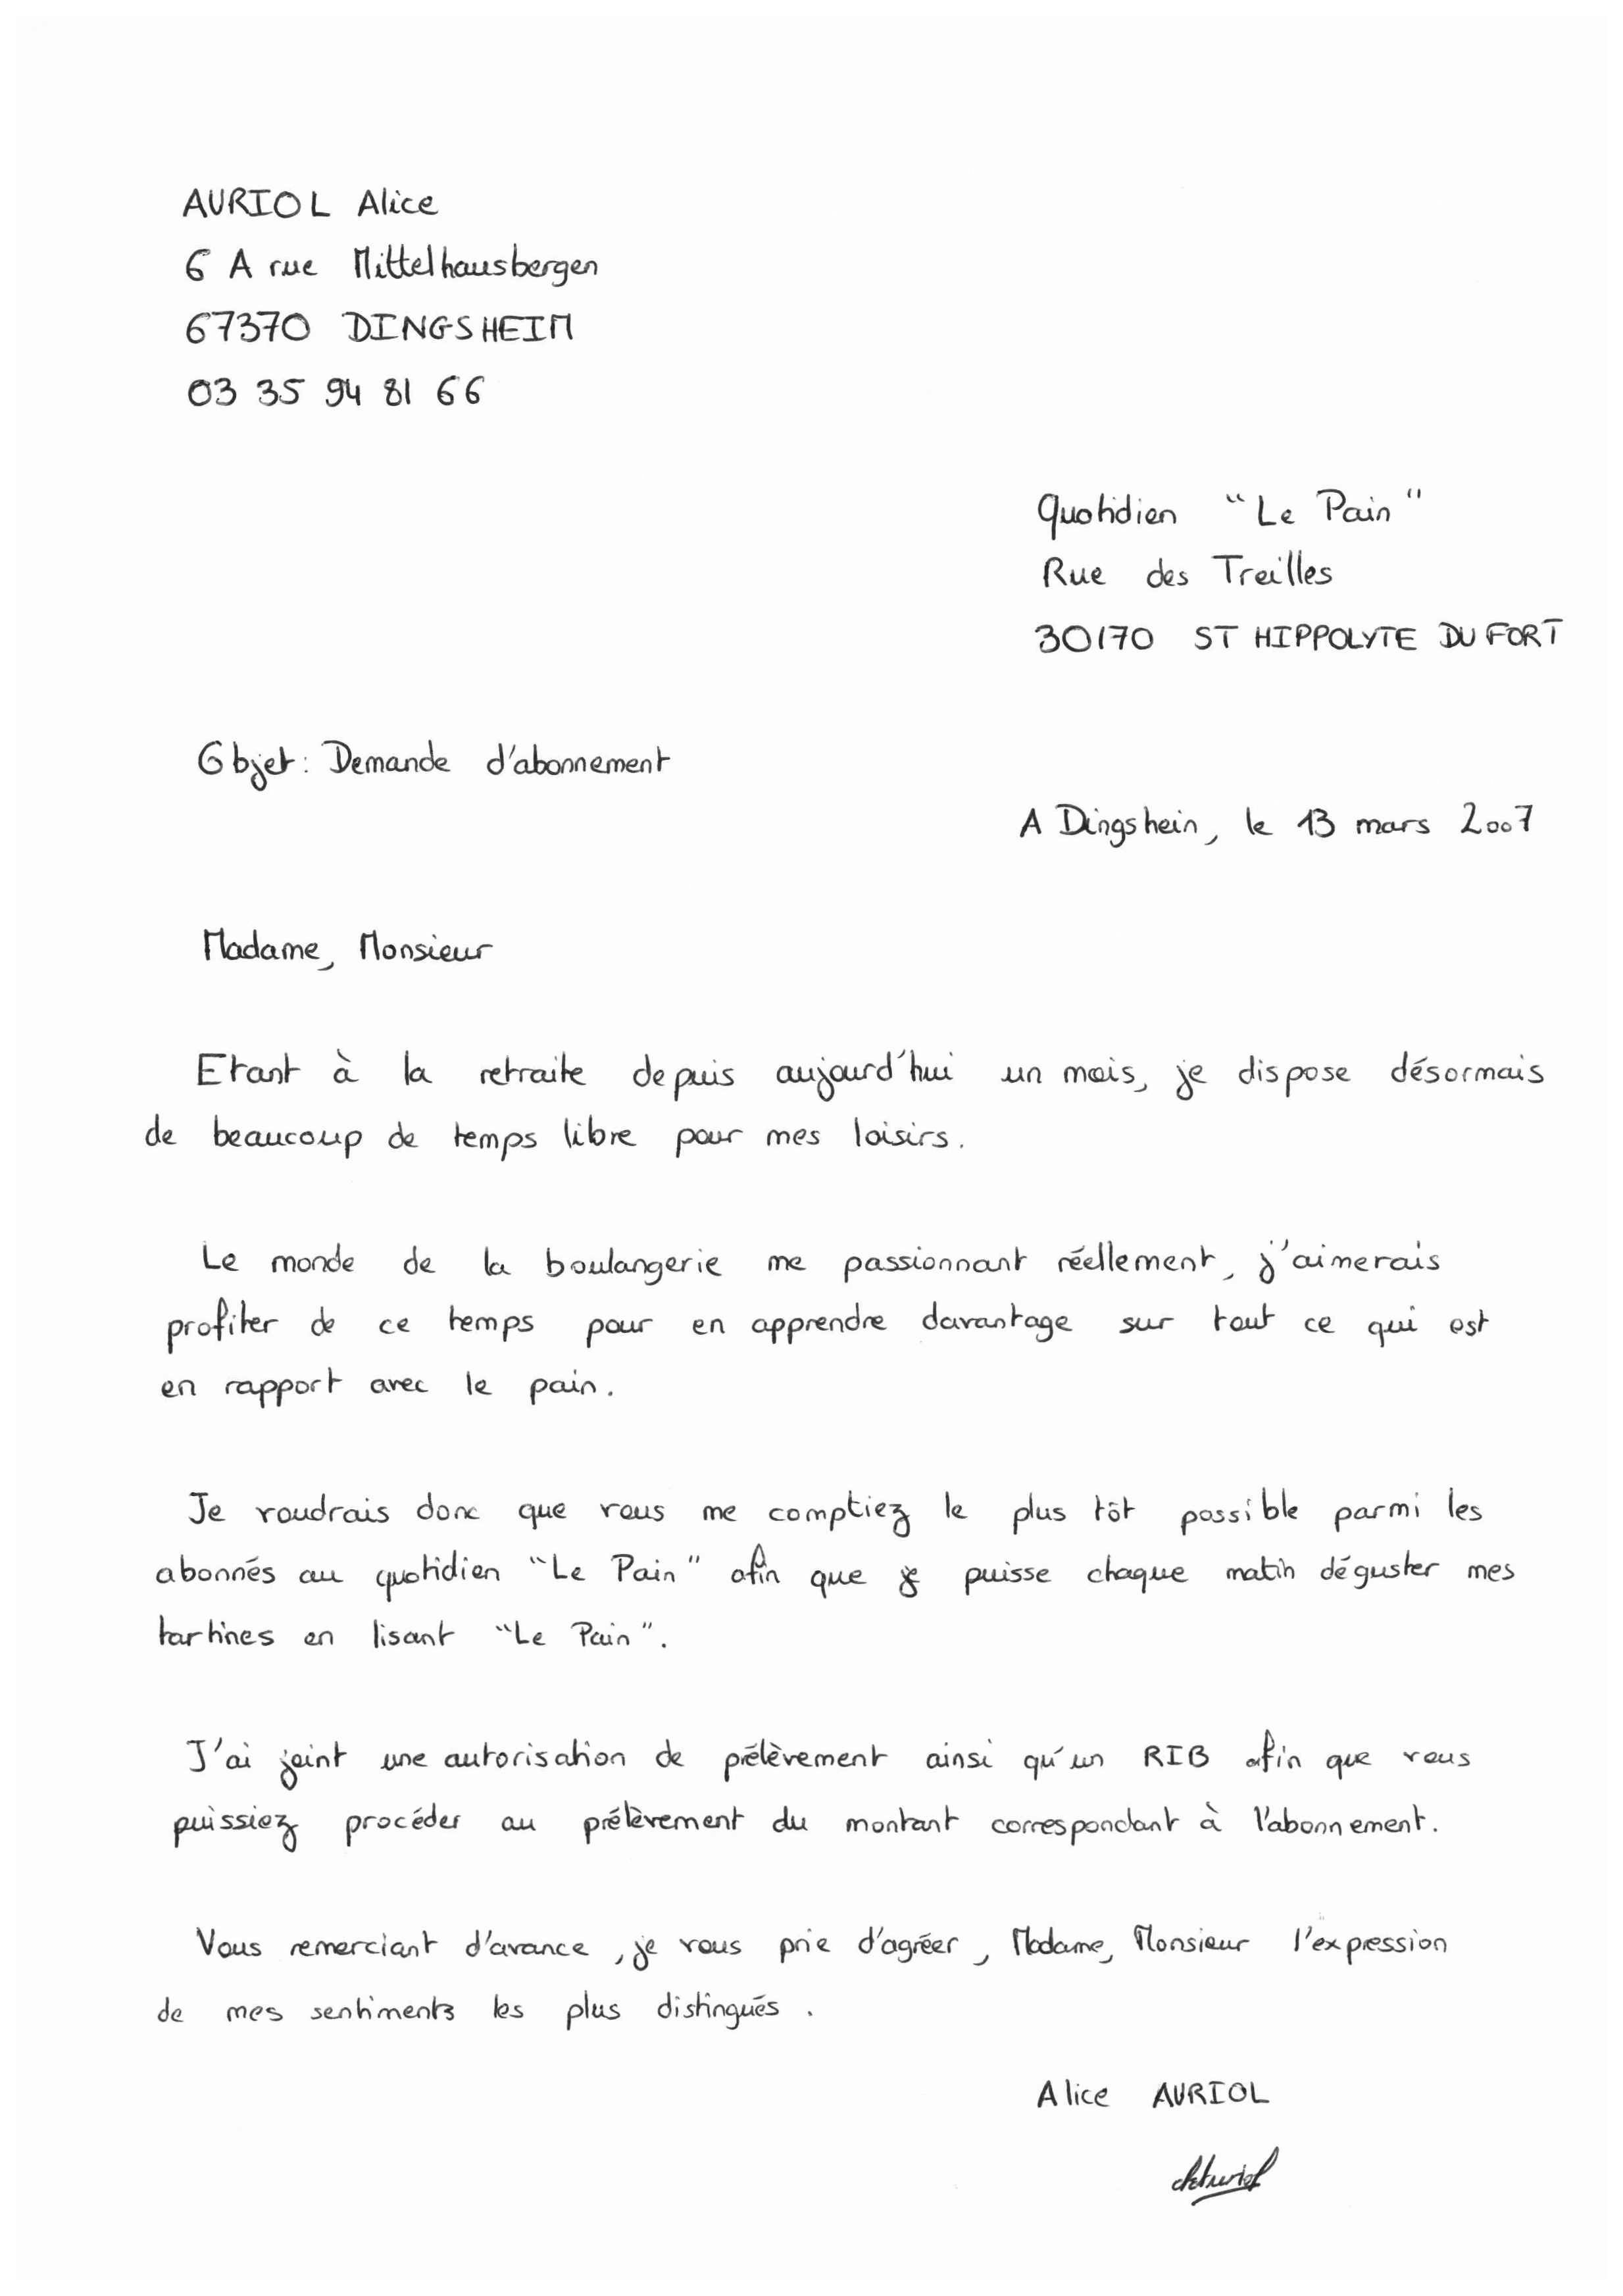 AURIOL Alice
6 A rue Mittelhausbergen
67370 DINGSHEIM
03 35 94 81 66
Quotidien "Le Pain"
Rue des Treilles
30170 ST HIPPOLYTE DU FORT
Objet : Demande d'abonnement
A Dingshein, le 13 mars 2007
Madame, Monsieur
Etant à la retraite depuis aujourd'hui un mois, je dispose désormais
de beaucoup de temps libre pour mes loisirs.
Le monde de la boulangerie me passionnant réellement, j'aimerais
profiter de ce temps pour en apprendre davantage sur tout ce qui est
en rapport avec le pain.
Je voudrais donc que vous me comptiez le plus tôt possible parmi les
abonnés au quotidien "Le Pain" afin que je puisse chaque matin déguster mes
tartines en lisant "Le Pain".
J'ai joint une autorisation de prélèvement ainsi qu'un RIB afin que vous
puissiez procéder au prélèvement du montant correspondant à l'abonnement.
Vous remerciant d'avance, je vous prie d'agréer, Madame, Monsieur l'expression
de mes sentiments les plus distingués.
Alice AURIOL